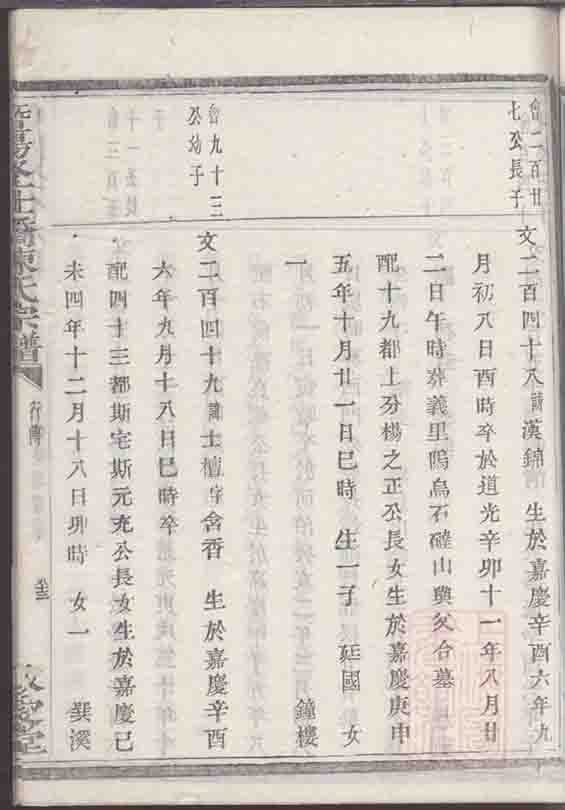 會二百廿
七公長子
文二百四十八諱漢錦 生於嘉慶辛酉六年九
月初八日酉時卒於道光辛卯十一年八月廿
二日午時葬義里塢烏石磡山與父合墓
配十九都上分楊之正公長女生於嘉慶庚申
五年十月廿一日巳時 生一子 延國 女
一 鐘樓
會九十三
公幼子
文二百四十九諱士檀字含香 生於嘉慶辛酉
六年九月十八日巳時卒
配四十三都斯宅斯元充公長女生於嘉慶己
未四年十二月十八日卯時 女一 巽溪
暨陽 陳氏宗譜
行傳